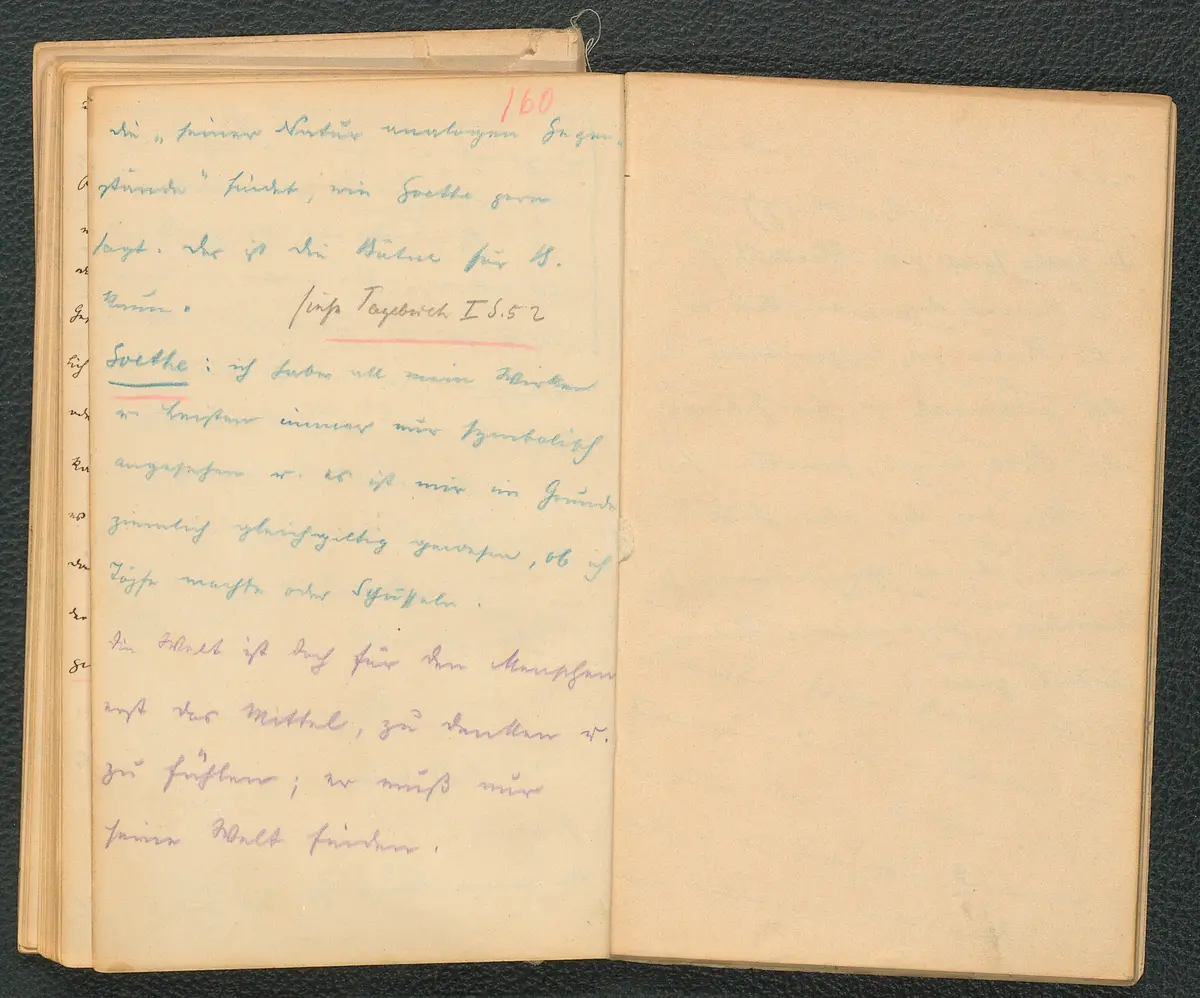 160
die „seiner Natur analogen Gegen-
stände" findet, wie Goethe gern
sagt. Das ist die Bühne für
Raum.
siehe Tagebuch I S. 52
Goethe: ich habe all mein Wirken
u. Leisten immer nur symbolisch
angesehen u. es ist mir im Grunde
ziemlich gleichgiltig gewesen, ob ich
Töpfe machte oder Schüsseln.
Die Welt ist doch für den Menschen
erst das Mittel, zu denken u.
zu fühlen; er muß nur
seine Welt finden.